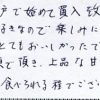 戸で始めて買入致
好きなので楽しみに
とてもおいしかったで
頂き、上品な甘
食べられる程でござ